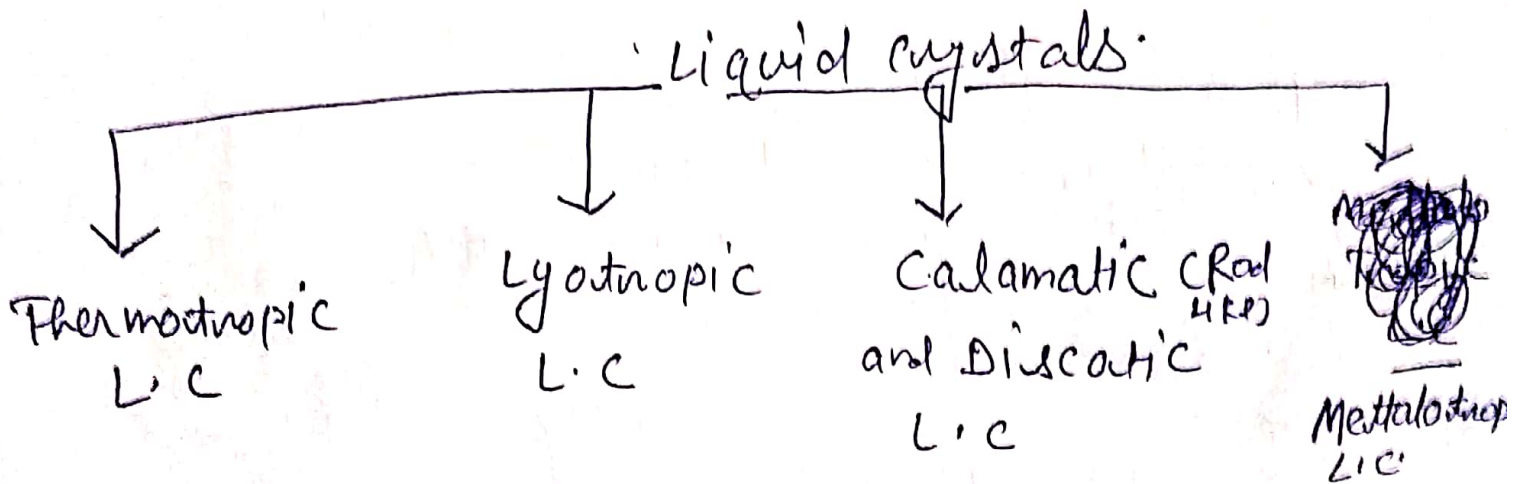 Liquid crystals.
Thermotropic
L.C
Lyotropic
L.C
Calamatic (Rod
like)
and Discotic
L.C
Mettalotrop
L.C.